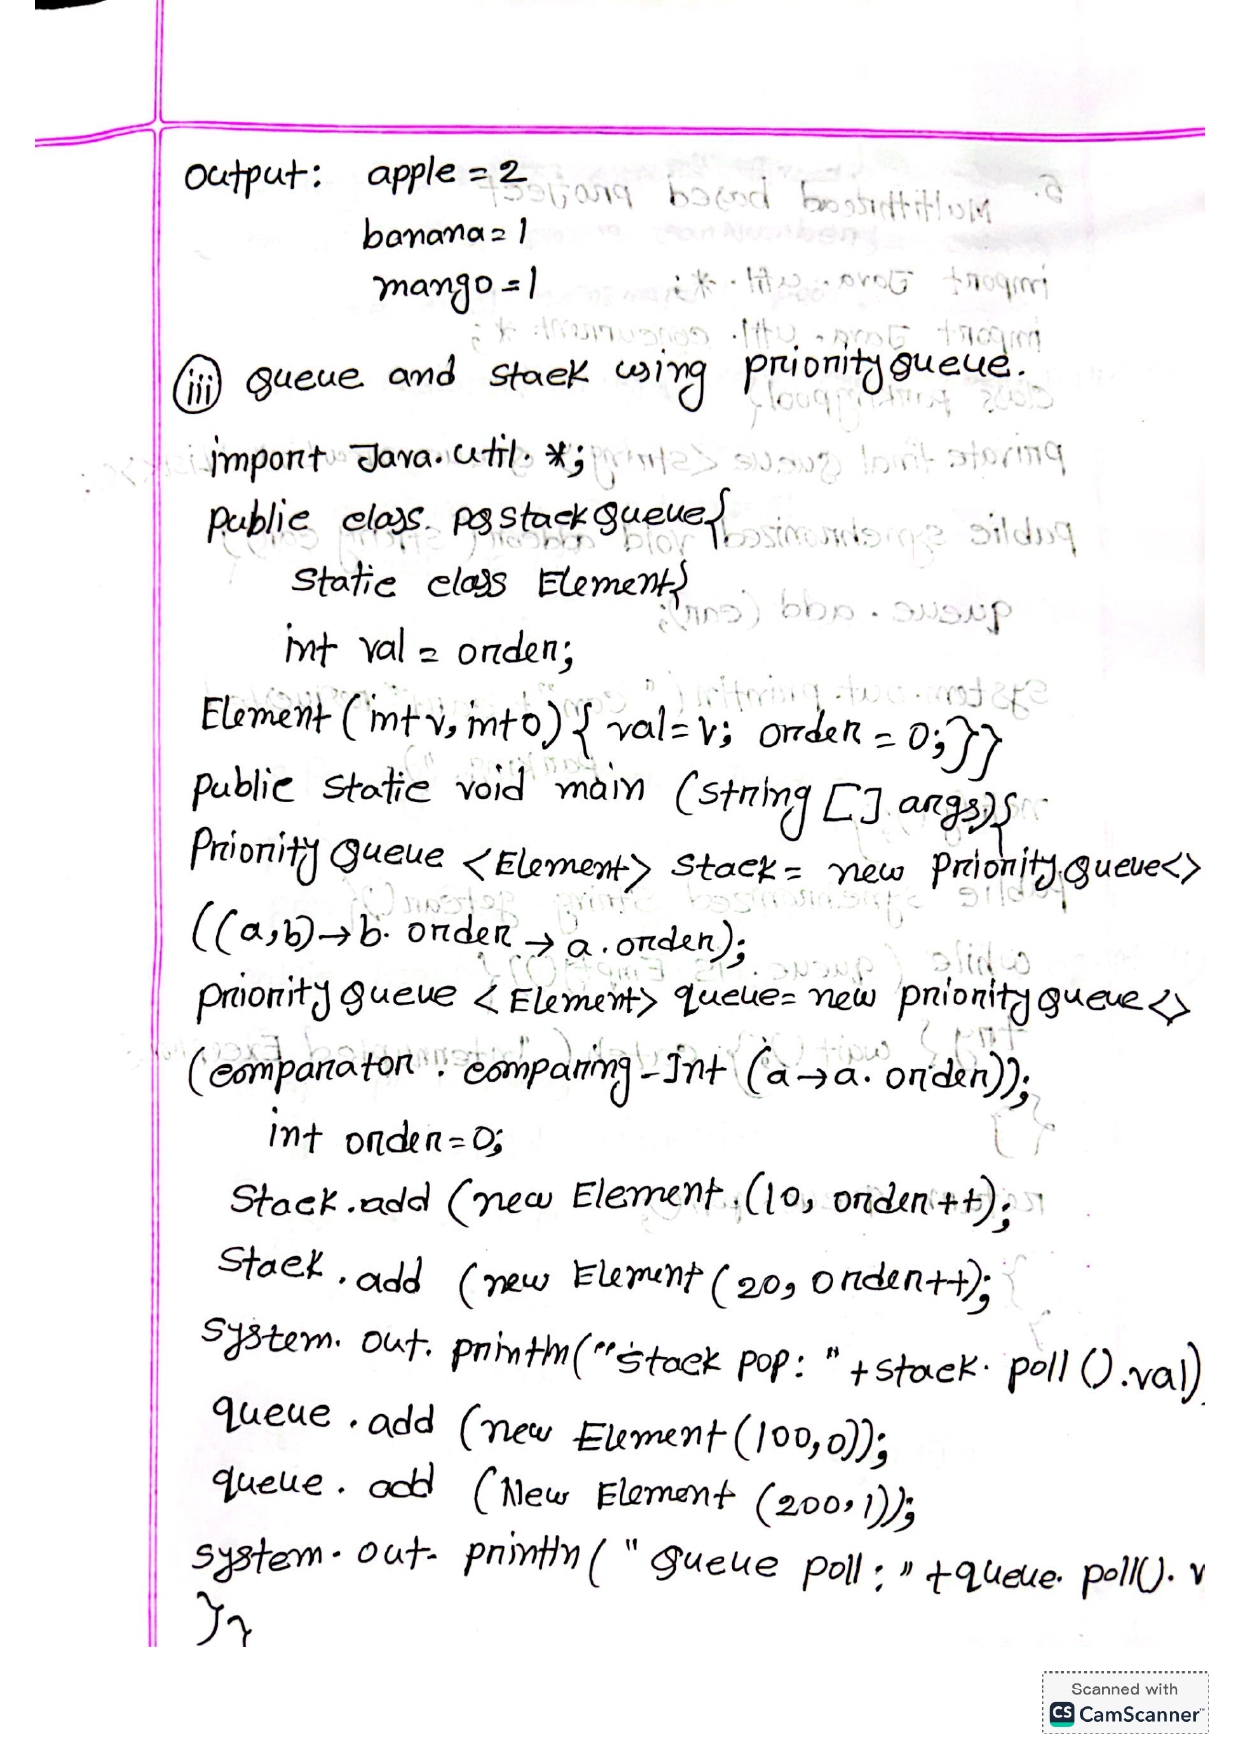 output: apple = 2
banana = 1
mango = 1
(iii) queue and stack using priorityqueue.
import Java.util.*;
public class. pqstackqueue{
Static class Element{
int val = order;
Element (int v, int o) { val = v; order = 0;}}
public static void main (string [] args){
Priority queue <Element> stack = new Priority queue<>
((a,b)→b. order → a.order);
priority queue <Element> queue = new priority queue<>
(comparator . comparing-Int (a→a. order));
int order = 0;
Stack.add (new Element.(10, order++);
Stack.add (new Element (20, order++);
system. out. println("stack pop: " + stack. poll ().val)
queue .add (new Element (100,0));
queue . add (New Element (200,1));
system. out. println ( " queue poll : " + queue. poll(). v
}}
Scanned with
CS CamScanner